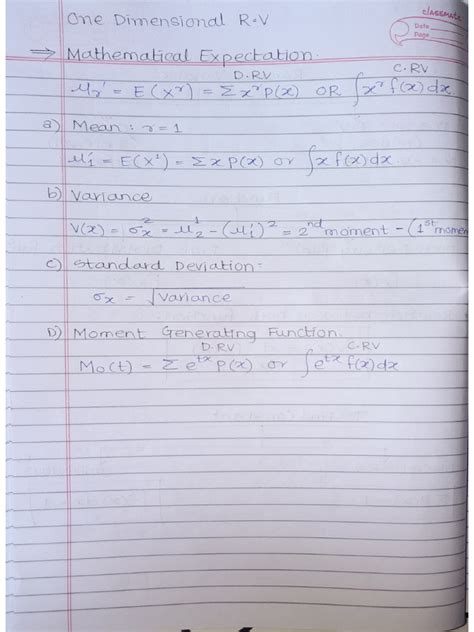 One Dimensional R.V
classmate
Date
Page
⇒ Mathematical Expectation.
D.RV C.RV
μr' = E(X^r) = Σ x^r p(x) OR ∫x^r f(x)dx
a) Mean : r=1
μ1' = E(X^1) = Σ x P(x) or ∫x f(x)dx.
b) Variance
V(x) = σx^2 = μ2^1 - (μ1')^2 = 2nd moment - (1st momen
c) Standard Deviation:-
σx = √Variance
D) Moment Generating Function.
D.RV C.RV
M0(t) = Σ e^tx P(x) or ∫e^tx f(x)dx